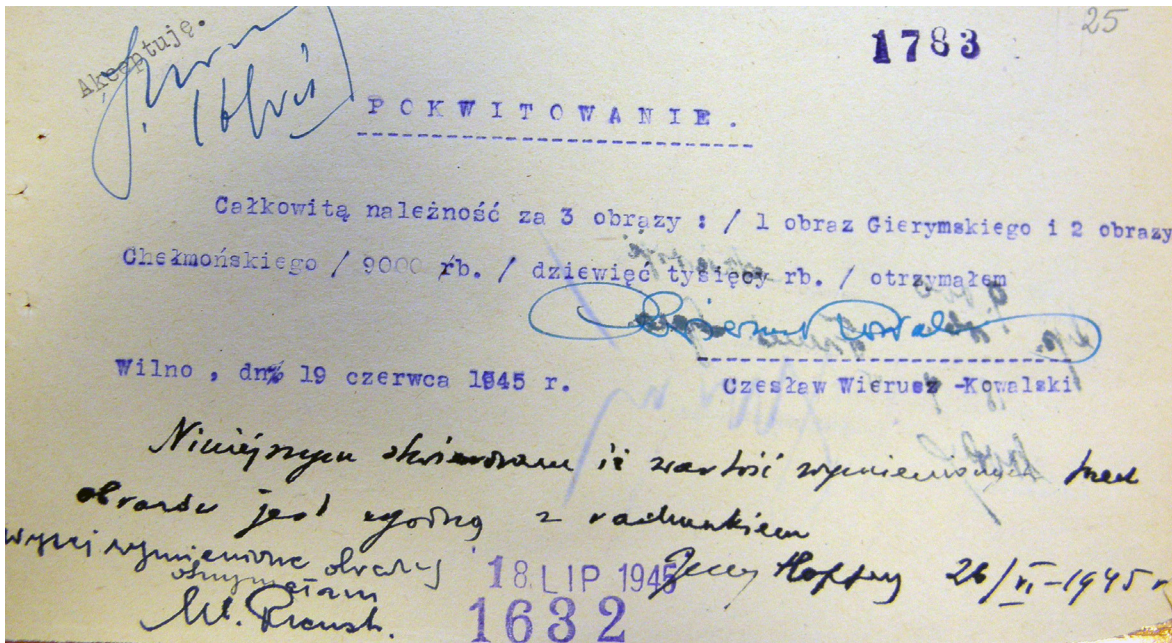 25
1783
Akceptuję.
POKWITOWANIE.
Całkowitą należność za 3 obrazy : / 1 obraz Gierymskiego i 2 obrazy
Chełmońskiego / 9000 rb. / dziewięć tysięcy rb. / otrzymałem
Wilno , dn 19 czerwca 1945 r.
Czesław Wierusz -Kowalski
Niniejszym stwierdzam iż wartość wymienionych trzech
obrazów jest zgodną z rachunkiem
wyżej wymienione obrazy
otrzymałam
18 LIP 1945
Jerzy Hoppen 26/VI-1945 r
1632